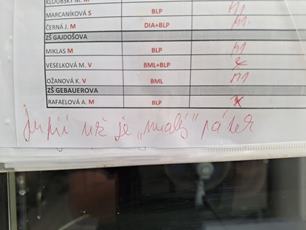 MARCANIKOVÁ S BLP
ČERNÁ J. M DIA+BLP M
ZŠ GAJDOŠOVA
MIKLAS M BLP
VESELKOVÁ M. V BML+BLP
OŽANOVÁ K. V BML M
ZŠ GEBAUEROVA
RAFAELOVÁ A. M BLP
Jupíí už je „malý" pátek